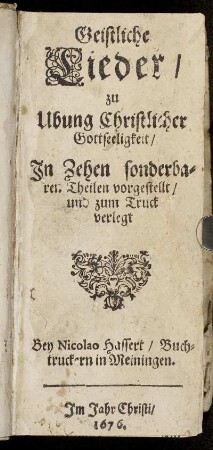 Geistliche
Lieder /
zu
Ubung Christlicher
Gottseeligkeit /
In Zehen sonderba-
ren Theilen vorgestellt /
und zum Truck
verlegt
Bey Nicolao Hassert / Buch-
truckern in Meiningen.
Im Jahr Christi /
1676.